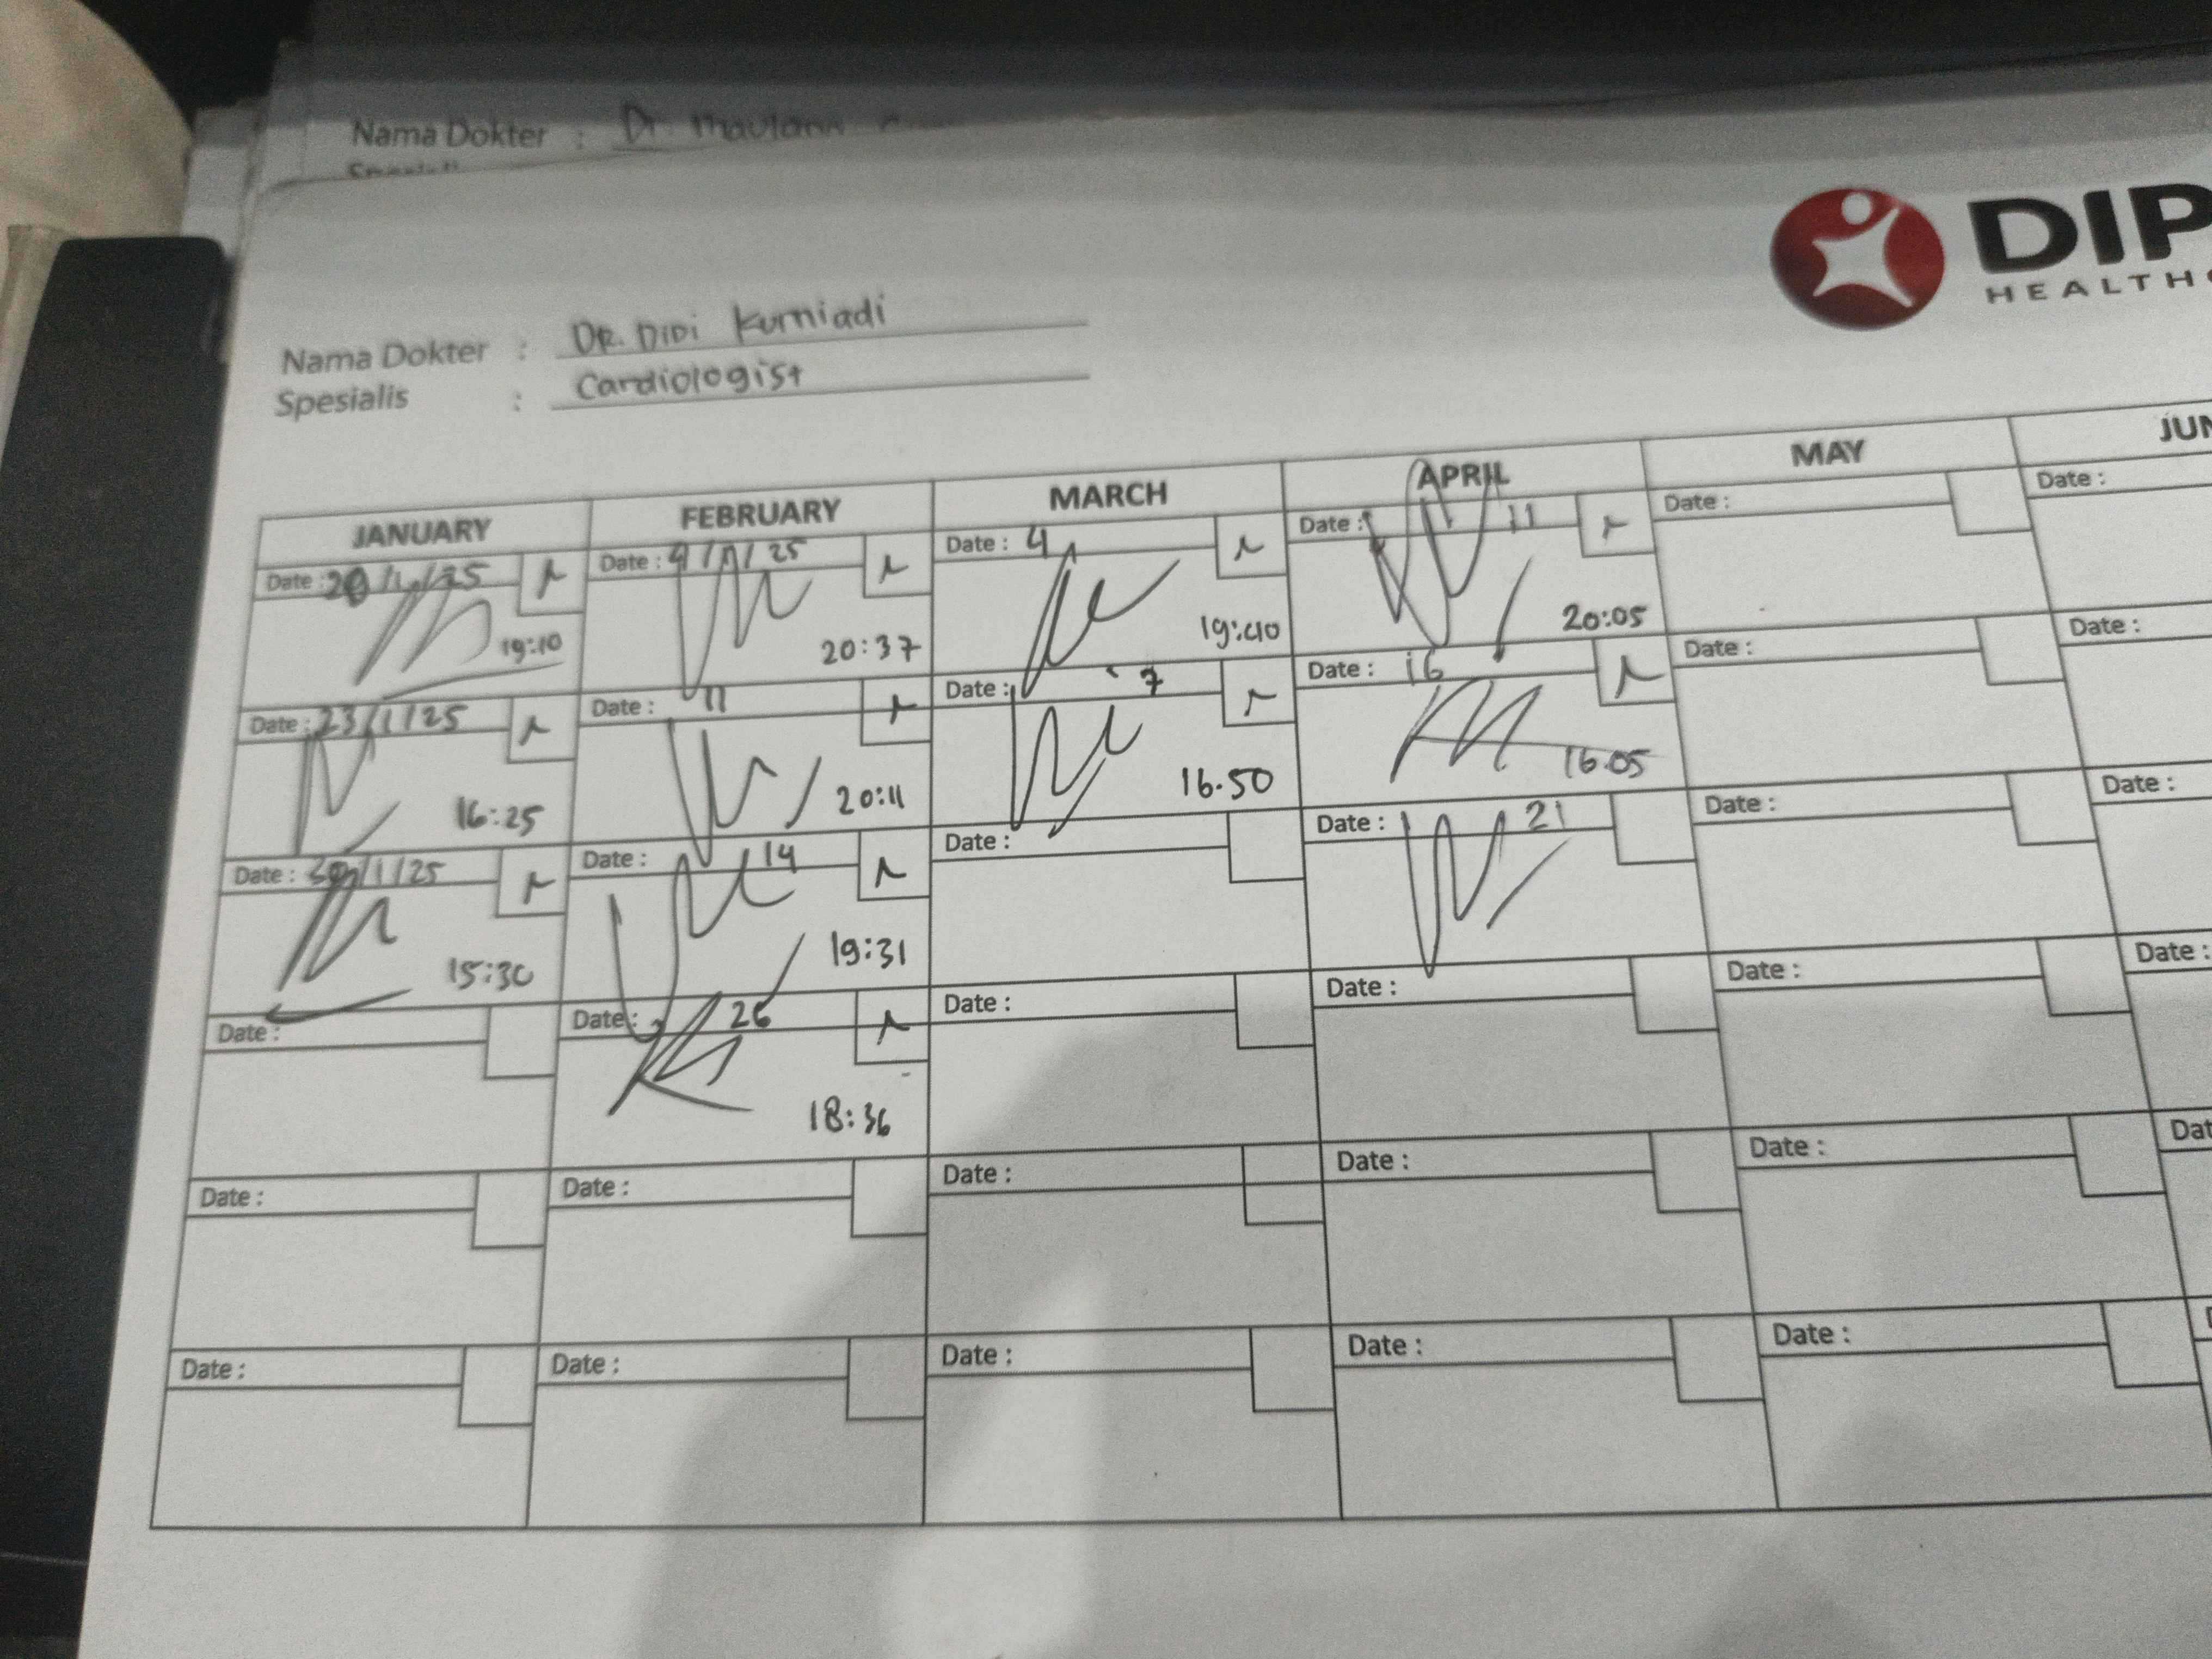 Nama Dokter : Dr. Maulana
Nama Dokter : DR. DIDI Kurniadi
Spesialis : Cardiologist
DIP
HEALTH
JANUARY FEBRUARY MARCH APRIL MAY JUN
Date : 20/1/25 Date : 4/ /25 Date : 4 Date : 11 Date : Date :
19:10 20:37 19:40 20:05
Date : 23/1/25 Date : 11 Date : 7 Date : 16 Date : Date :
16:25 20:11 16.50 16.05
Date : 30/1/25 Date : 14 Date : Date : 21 Date : Date :
15:30 19:31
Date : Date : 26 Date : Date : Date : Date :
18:36
Date : Date : Date : Date : Date : Dat
Date : Date : Date : Date : Date :